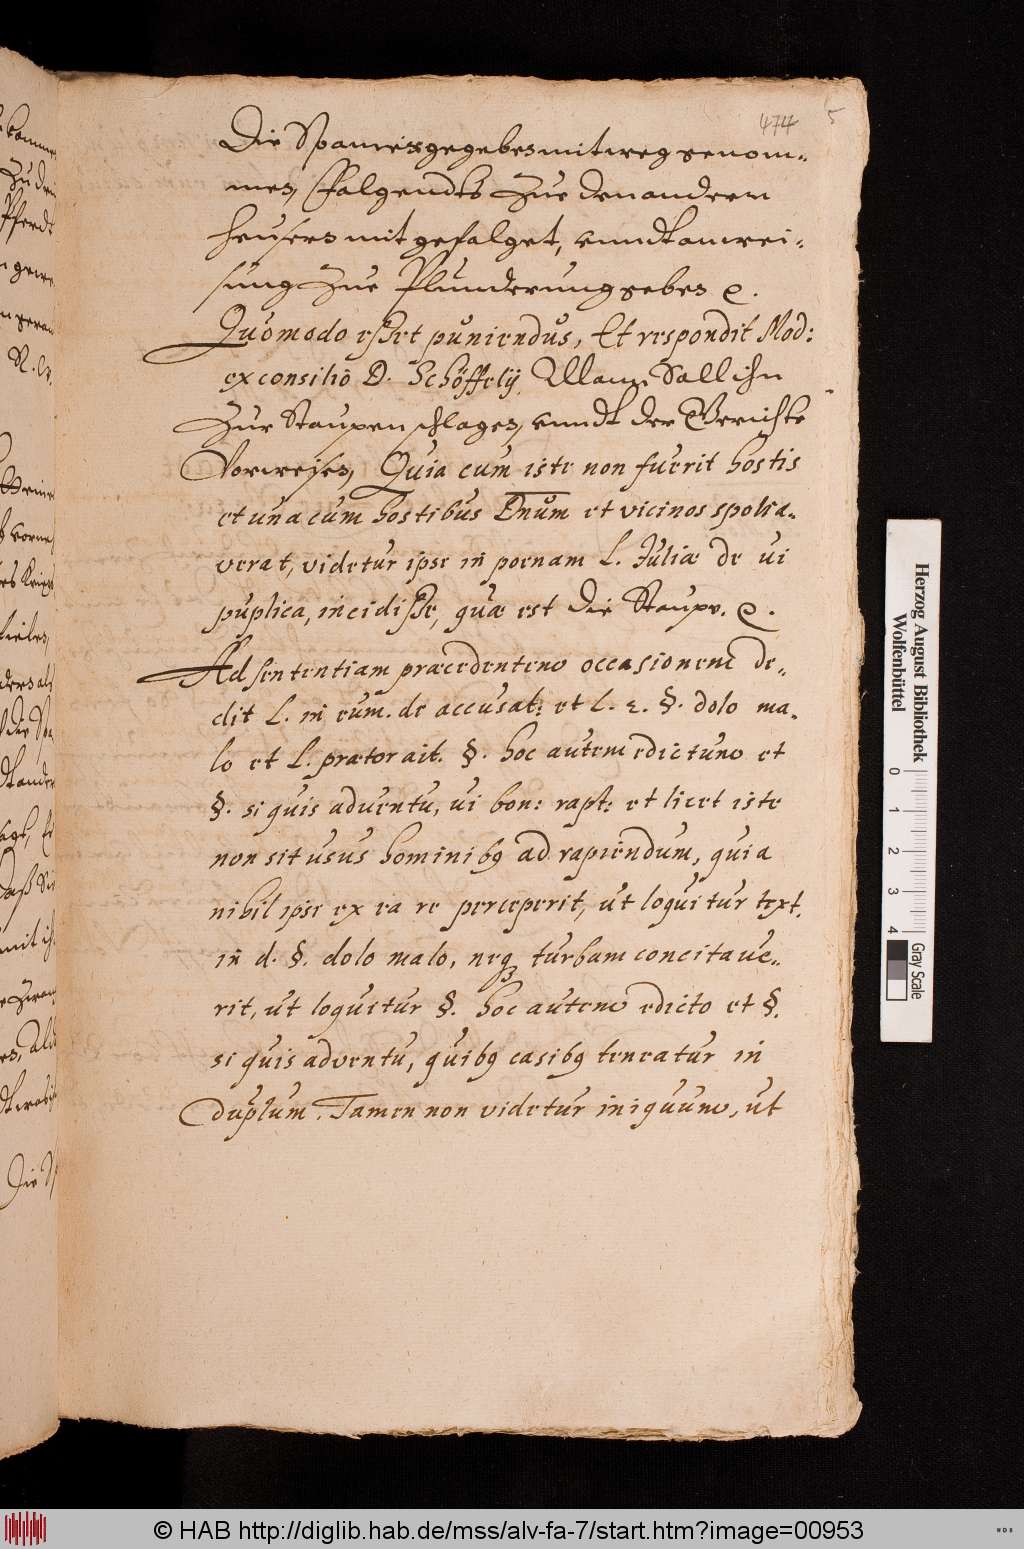 474 5
Die Spanier gegeben mit weg genom-
men, Folgendts Zue den andern
heusern mit gefolget, vnndt anwei-
sung Zue Plünderung geben ꝛc.
Quomodo esset puniendus, Et respondit Mod:
ex consiliô D. Schöffelij. Mann Soll ihn
Zur Staupen schlagen, vnndt der Gerichte
Vorweisen, Quia cum iste non fuerit hostis
et una cum hostibus Dnum et vicinos spolia-
verat, videtur ipse in poenam L. Juliæ de vi
puplica, incidisse, quæ est die Staupe. ꝛc.
Ad sententiam præcedentem occasionem de-
dit L. in eum. de accusat: et L. 2. §. dolo ma-
lo et L. prætor ait. §. hoc autem edictum et
§. si quis adventu, vi bon: rapt: et licet iste
non sit usus hominibꝯ ad rapiendum, quia
nihil ipse ex ea re perceperit, ut loquitur text.
in d. §. dolo malo, neqꝫ turbam concitave-
rit, ut loquitur §. hoc autem edicto et §.
si quis adventu, quibꝯ casibꝯ teneatur in
duplum. Tamen non videtur iniquum, ut
Herzog August Bibliothek
Wolfenbüttel
0 1 2 3 4
Gray Scale
© HAB http://diglib.hab.de/mss/alv-fa-7/start.htm?image=00953